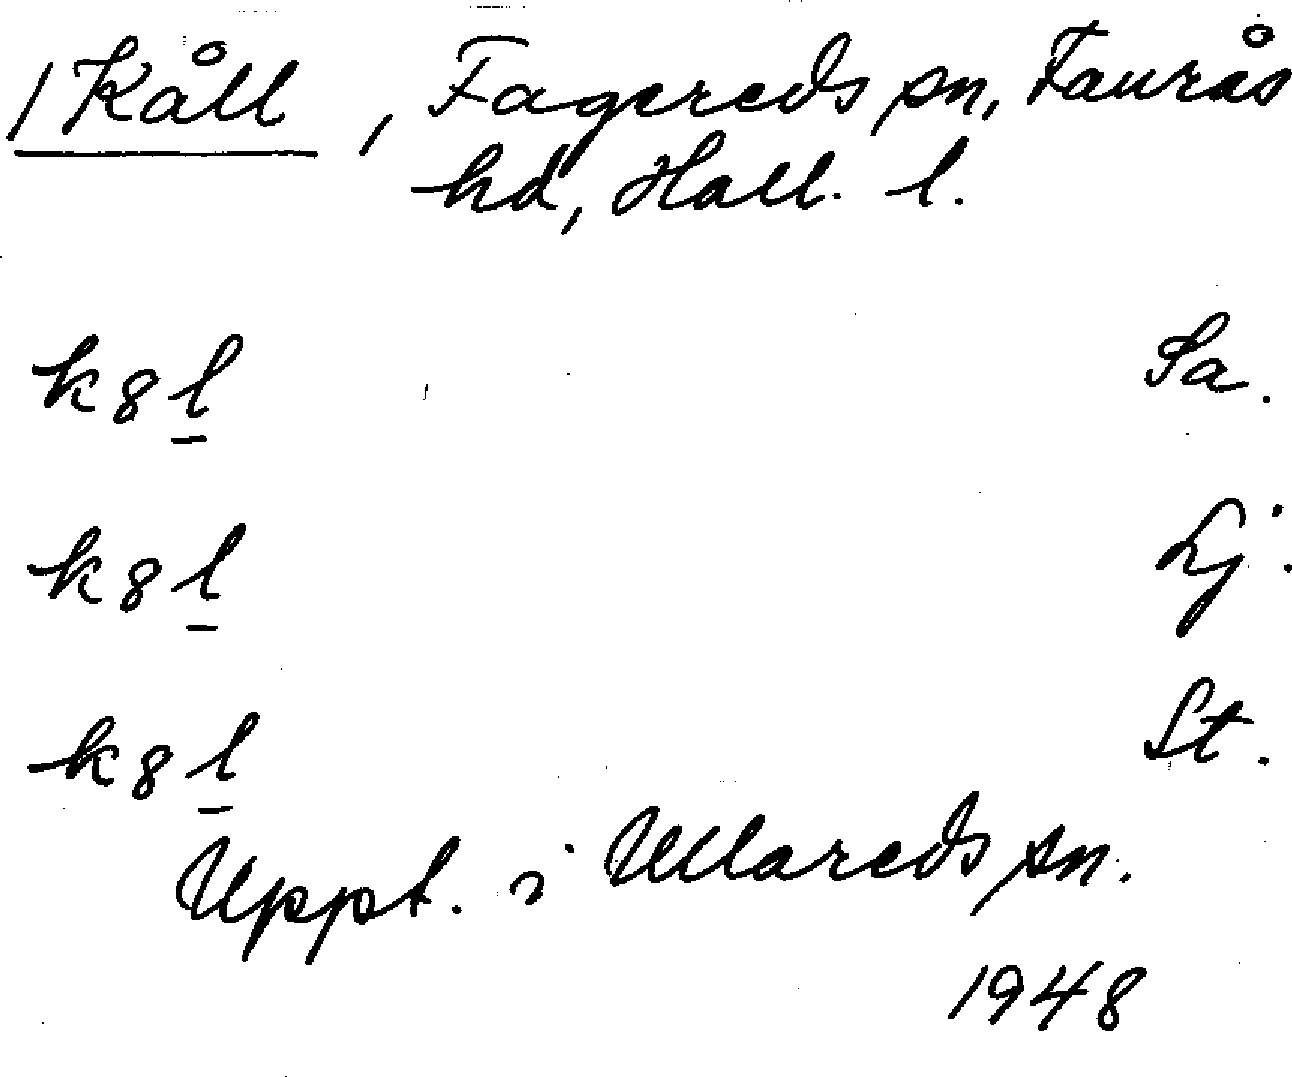 /Kåll, Fagereds sn, Faurås
hd, Hall. l.
k8l Sa.
k8l Lj.
k8l St.
Uppt. i Ullareds sn.
1948